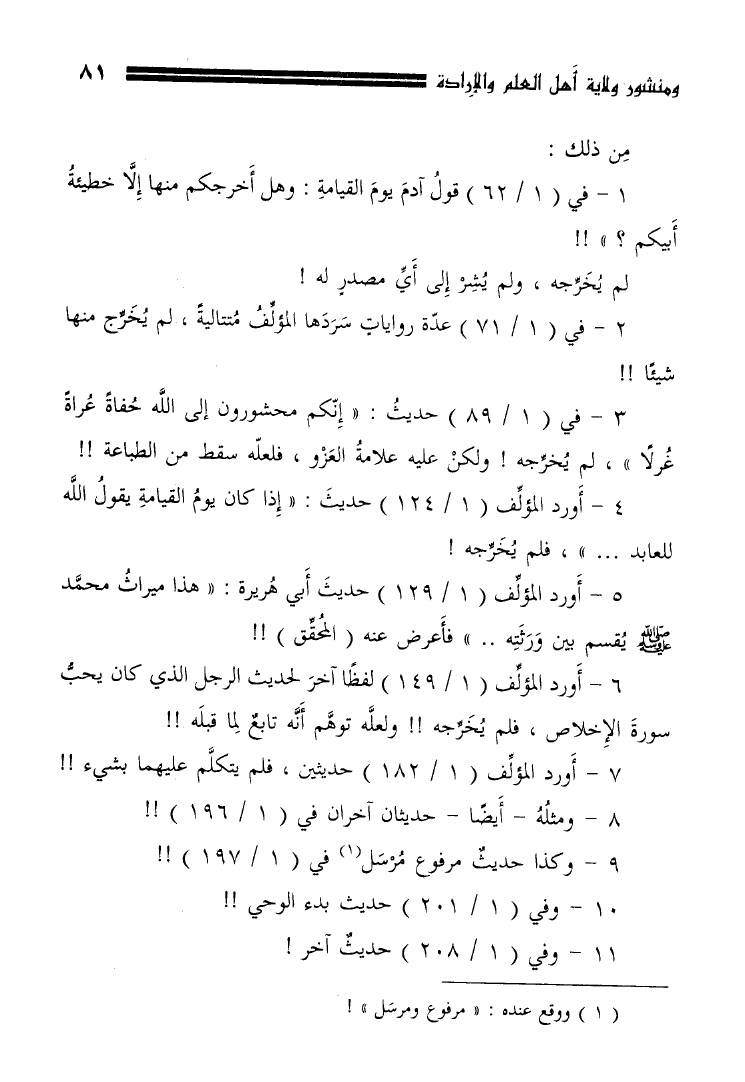 ومنشور ولاية أهل العلم والإرادة ٨١
مِن ذلك :
١ - في ( ١ / ٦٢ ) قولُ آدمَ يومَ القيامةِ : وهل أَخرجكم منها إِلَّا خطيئةُ
أَبيكم ؟ » !!
لم يُخَرِّجه ، ولم يُشِرْ إِلى أَيِّ مصدرٍ له !
٢ - في ( ١ / ٧١ ) عدّة رواياتٍ سَرَدَها المؤلِّفُ مُتتاليةً ، لم يُخَرِّج منها
شيئًا !!
٣ - في ( ١ / ٨٩ ) حديثُ : « إِنّكم محشورون إلى اللَّه حُفاةً عُراةً
غُرلًا » ، لم يُخرِّجه ! ولكنْ عليه علامةُ العَزْو ، فلعلّه سقط من الطباعة !!
٤ - أَورد المؤلِّف ( ١ / ١٢٤ ) حديثَ : « إِذا كان يومُ القيامةِ يقولُ اللَّه
للعابد ... » ، فلم يُخَرِّجه !
٥ - أَورد المؤلِّف ( ١ / ١٢٩ ) حديثَ أَبي هُريرة : « هذا ميراثُ محمَّد
ﷺ يُقسم بين وَرَثَتِه .. » فأَعرض عنه ( المُحقِّق ) !!
٦ - أَورد المؤلِّف ( ١ / ١٤٩ ) لفظًا آخرَ لحديث الرجل الذي كان يحبُّ
سورةَ الإِخلاص ، فلم يُخَرِّجه !! ولعلَّه توهَّم أَنَّه تابعٌ لِما قبلَه !!
٧ - أَورد المؤلِّف ( ١ / ١٨٢ ) حديثين ، فلم يتكلَّم عليهما بشيء !!
٨ - ومثلُهُ - أَيضًا - حديثان آخران في ( ١ / ١٩٦ ) !!
٩ - وكذا حديثٌ مرفوع مُرْسَل(١) في ( ١ / ١٩٧ ) !!
١٠ - وفي ( ١ / ٢٠١ ) حديث بدء الوحي !!
١١ - وفي ( ١ / ٢٠٨ ) حديثٌ آخر !
( ١ ) ووقع عنده : « مرفوع ومرسَل » !